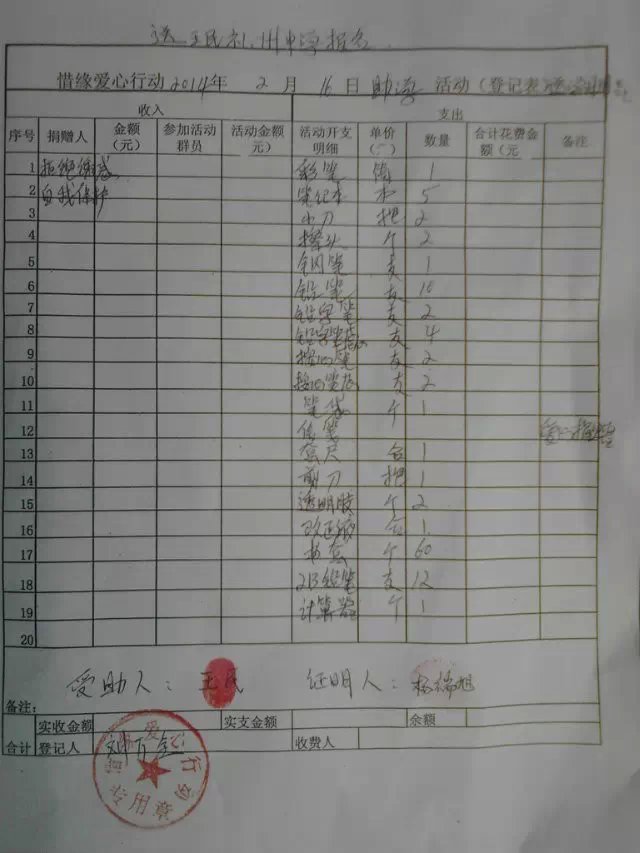 送王民礼州中学报名
惜缘爱心行动2014年 2 月 16 日 助学 活动（登记表）
收入 支出
序号 捐赠人 金额（元） 参加活动群员 活动金额元） 活动开支明细 单价（元） 数量 合计花费金额（元 备注
1 拒绝 彩笔 1
2 自我保护 笔记本 本 5
3 小刀 把 2
4 擦头 个 2
5 钢笔 支 1
6 铅笔 支 10
7 铅字笔 支 2
8 铅字笔芯 支 4
9 笔 支 2
10 笔芯 支 2
11 笔袋 个 1
12
13 套尺 合 1
14 剪刀 把 1
15 透明胶 个 2
16 改正液 1
17 书套 个 60
18 2B铅笔 支 12
19 计算器 个 1
20
受助人： 王民 证明人：
备注：
实收金额 实支金额 余额
合计 登记人 收费人
惜缘爱心行动
专用章